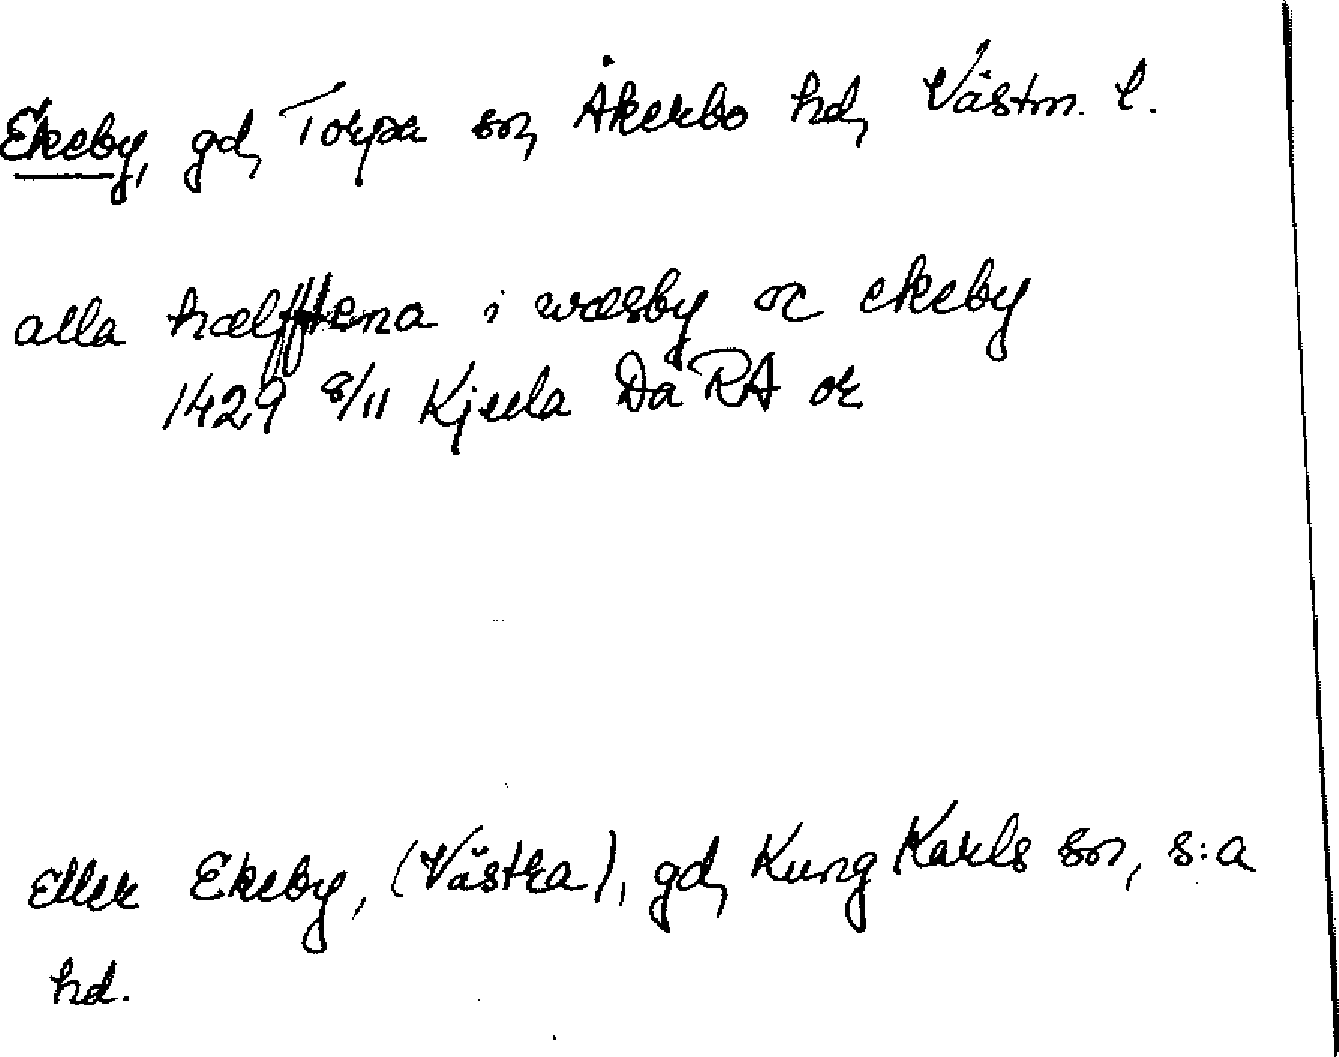 Ekeby, gd, Torpa sn, Åkerbo hd, Västm. l.
alla hælfftena i wæsby oc ekeby
1429 8/11 Kjula Da RA or
Eller Ekeby, (Västra), gd, Kung Karls sn, s:a
hd.